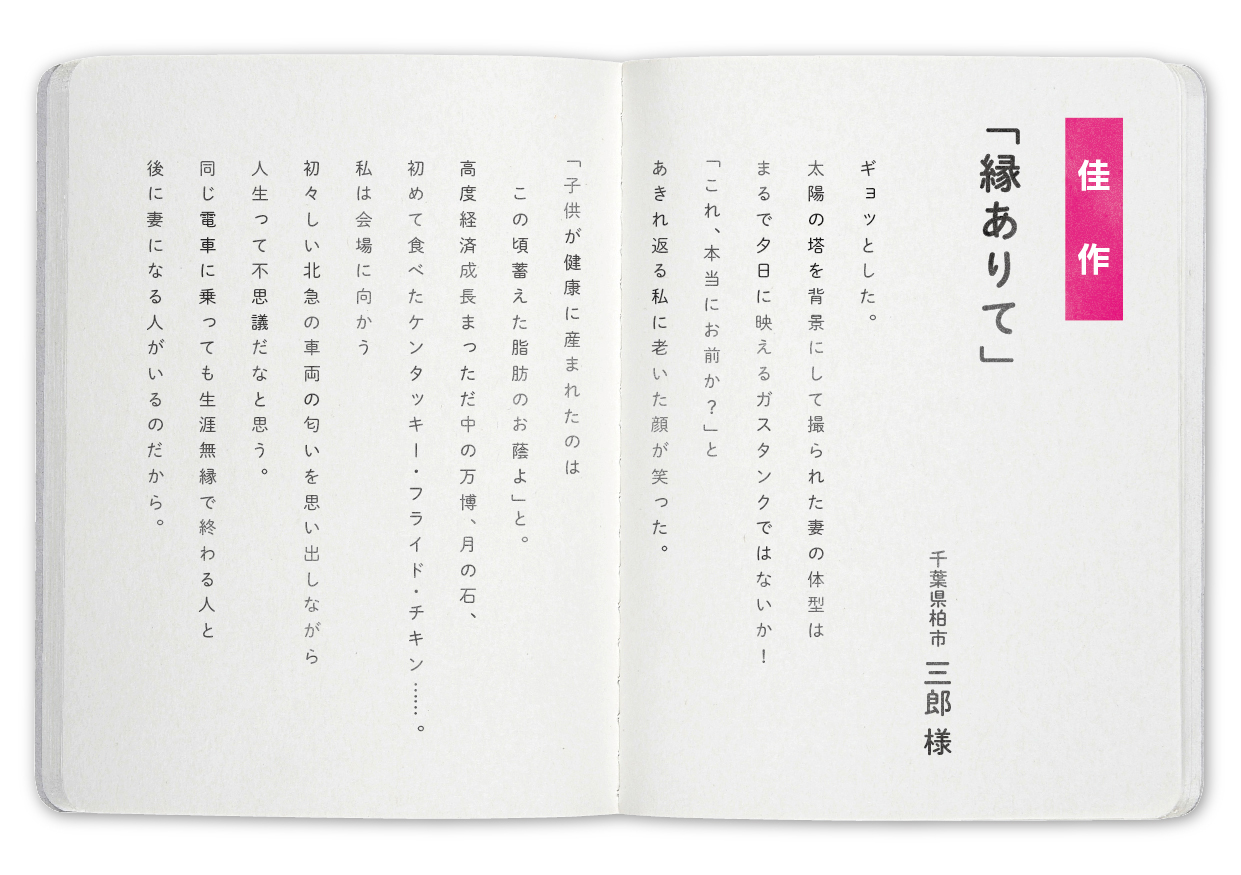 佳作
「縁ありて」
千葉県柏市 三郎 様
ギョッとした。
太陽の塔を背景にして撮られた妻の体型は
まるで夕日に映えるガスタンクではないか！
「これ、本当にお前か？」と
あきれ返る私に老いた顔が笑った。
「子供が健康に産まれたのは
この頃蓄えた脂肪のお蔭よ」と。
高度経済成長まっただ中の万博、月の石、
初めて食べたケンタッキー・フライド・チキン……。
私は会場に向かう
初々しい北急の車両の匂いを思い出しながら
人生って不思議だなと思う。
同じ電車に乗っても生涯無縁で終わる人と
後に妻になる人がいるのだから。